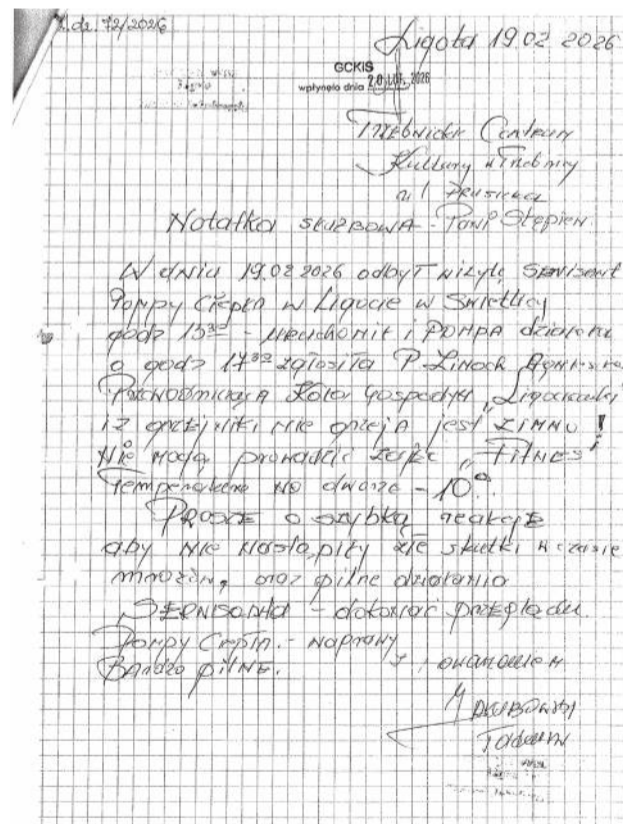 L.dz. 72/2026
Ligota 19.02 2026
GCKiS
wpłynęło dnia 20. LUT. 2026
Trzebnickie Centrum
Kultury w Trzebnicy
ul Prusicka
Notatka służbowa - Pani Stępień
W dniu 19.02 2026 odbył wizytę Serwisant
Pompy Ciepła w Ligocie w Świetlicy
godz 15³⁰ - uruchomił i Pompa działała
o godz 17³⁰ zgłosiła P. Linoch
Koła Gospodyń „Ligocianki"
iż grzejniki nie grzeją jest zimno!
Nie mogą prowadzić zajęć „Fitnes"
Temperatura na dworze -10°.
Proszę o szybką reakcję
aby nie nastąpiły złe skutki w czasie
mrozów, oraz pilne działania
Serwisanta - dokonać przeglądu.
Pompy Ciepła. - naprawy
Bardzo pilne.